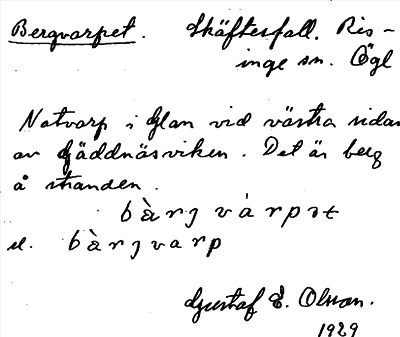 Bergvarpet. Skäftesfall. Ris-
inge sn. Ögl
Notvarp i Glan vid västra sidan
av Gäddnäsviken. Det är berg
å stranden.
bàrȷ várpɔt
el. bàrȷvarp
Gustaf E. Olsson.
1929